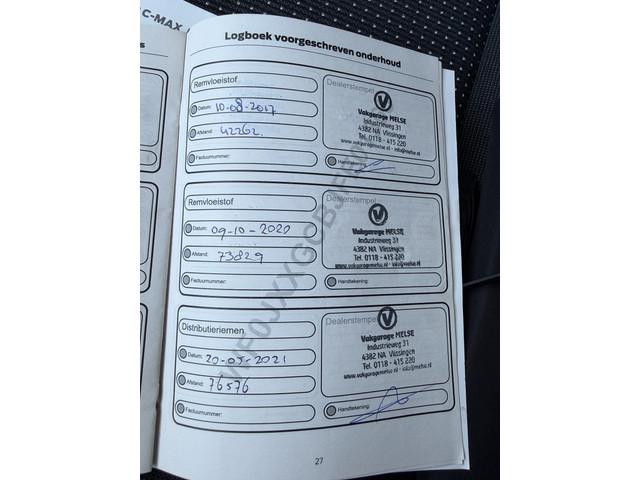 C-MAX
Logboek voorgeschreven onderhoud
Remvloeistof
Datum: 10-08-2017
Afstand: 42262.
Factuurnummer:
Dealerstempel
Vakgarage MELSE
Industrieweg 31
4382 NA Vlissingen
Tel. 0118 - 415 220
www.vakgaragemelse.nl - info@melse.nl
Handtekening:
Remvloeistof
Datum: 09-10-2020
Afstand: 73829
Factuurnummer:
Dealerstempel
Vakgarage MELSE
Industrieweg 31
4382 NA Vlissingen
Tel. 0118 - 415 220
www.vakgaragemelse.nl - info@melse.nl
Handtekening:
Distributieriemen
Datum: 20-05-2021
Afstand: 76576
Factuurnummer:
Dealerstempel
Vakgarage MELSE
Industrieweg 31
4382 NA Vlissingen
Tel. 0118 - 415 220
www.vakgaragemelse.nl - info@melse.nl
Handtekening:
27